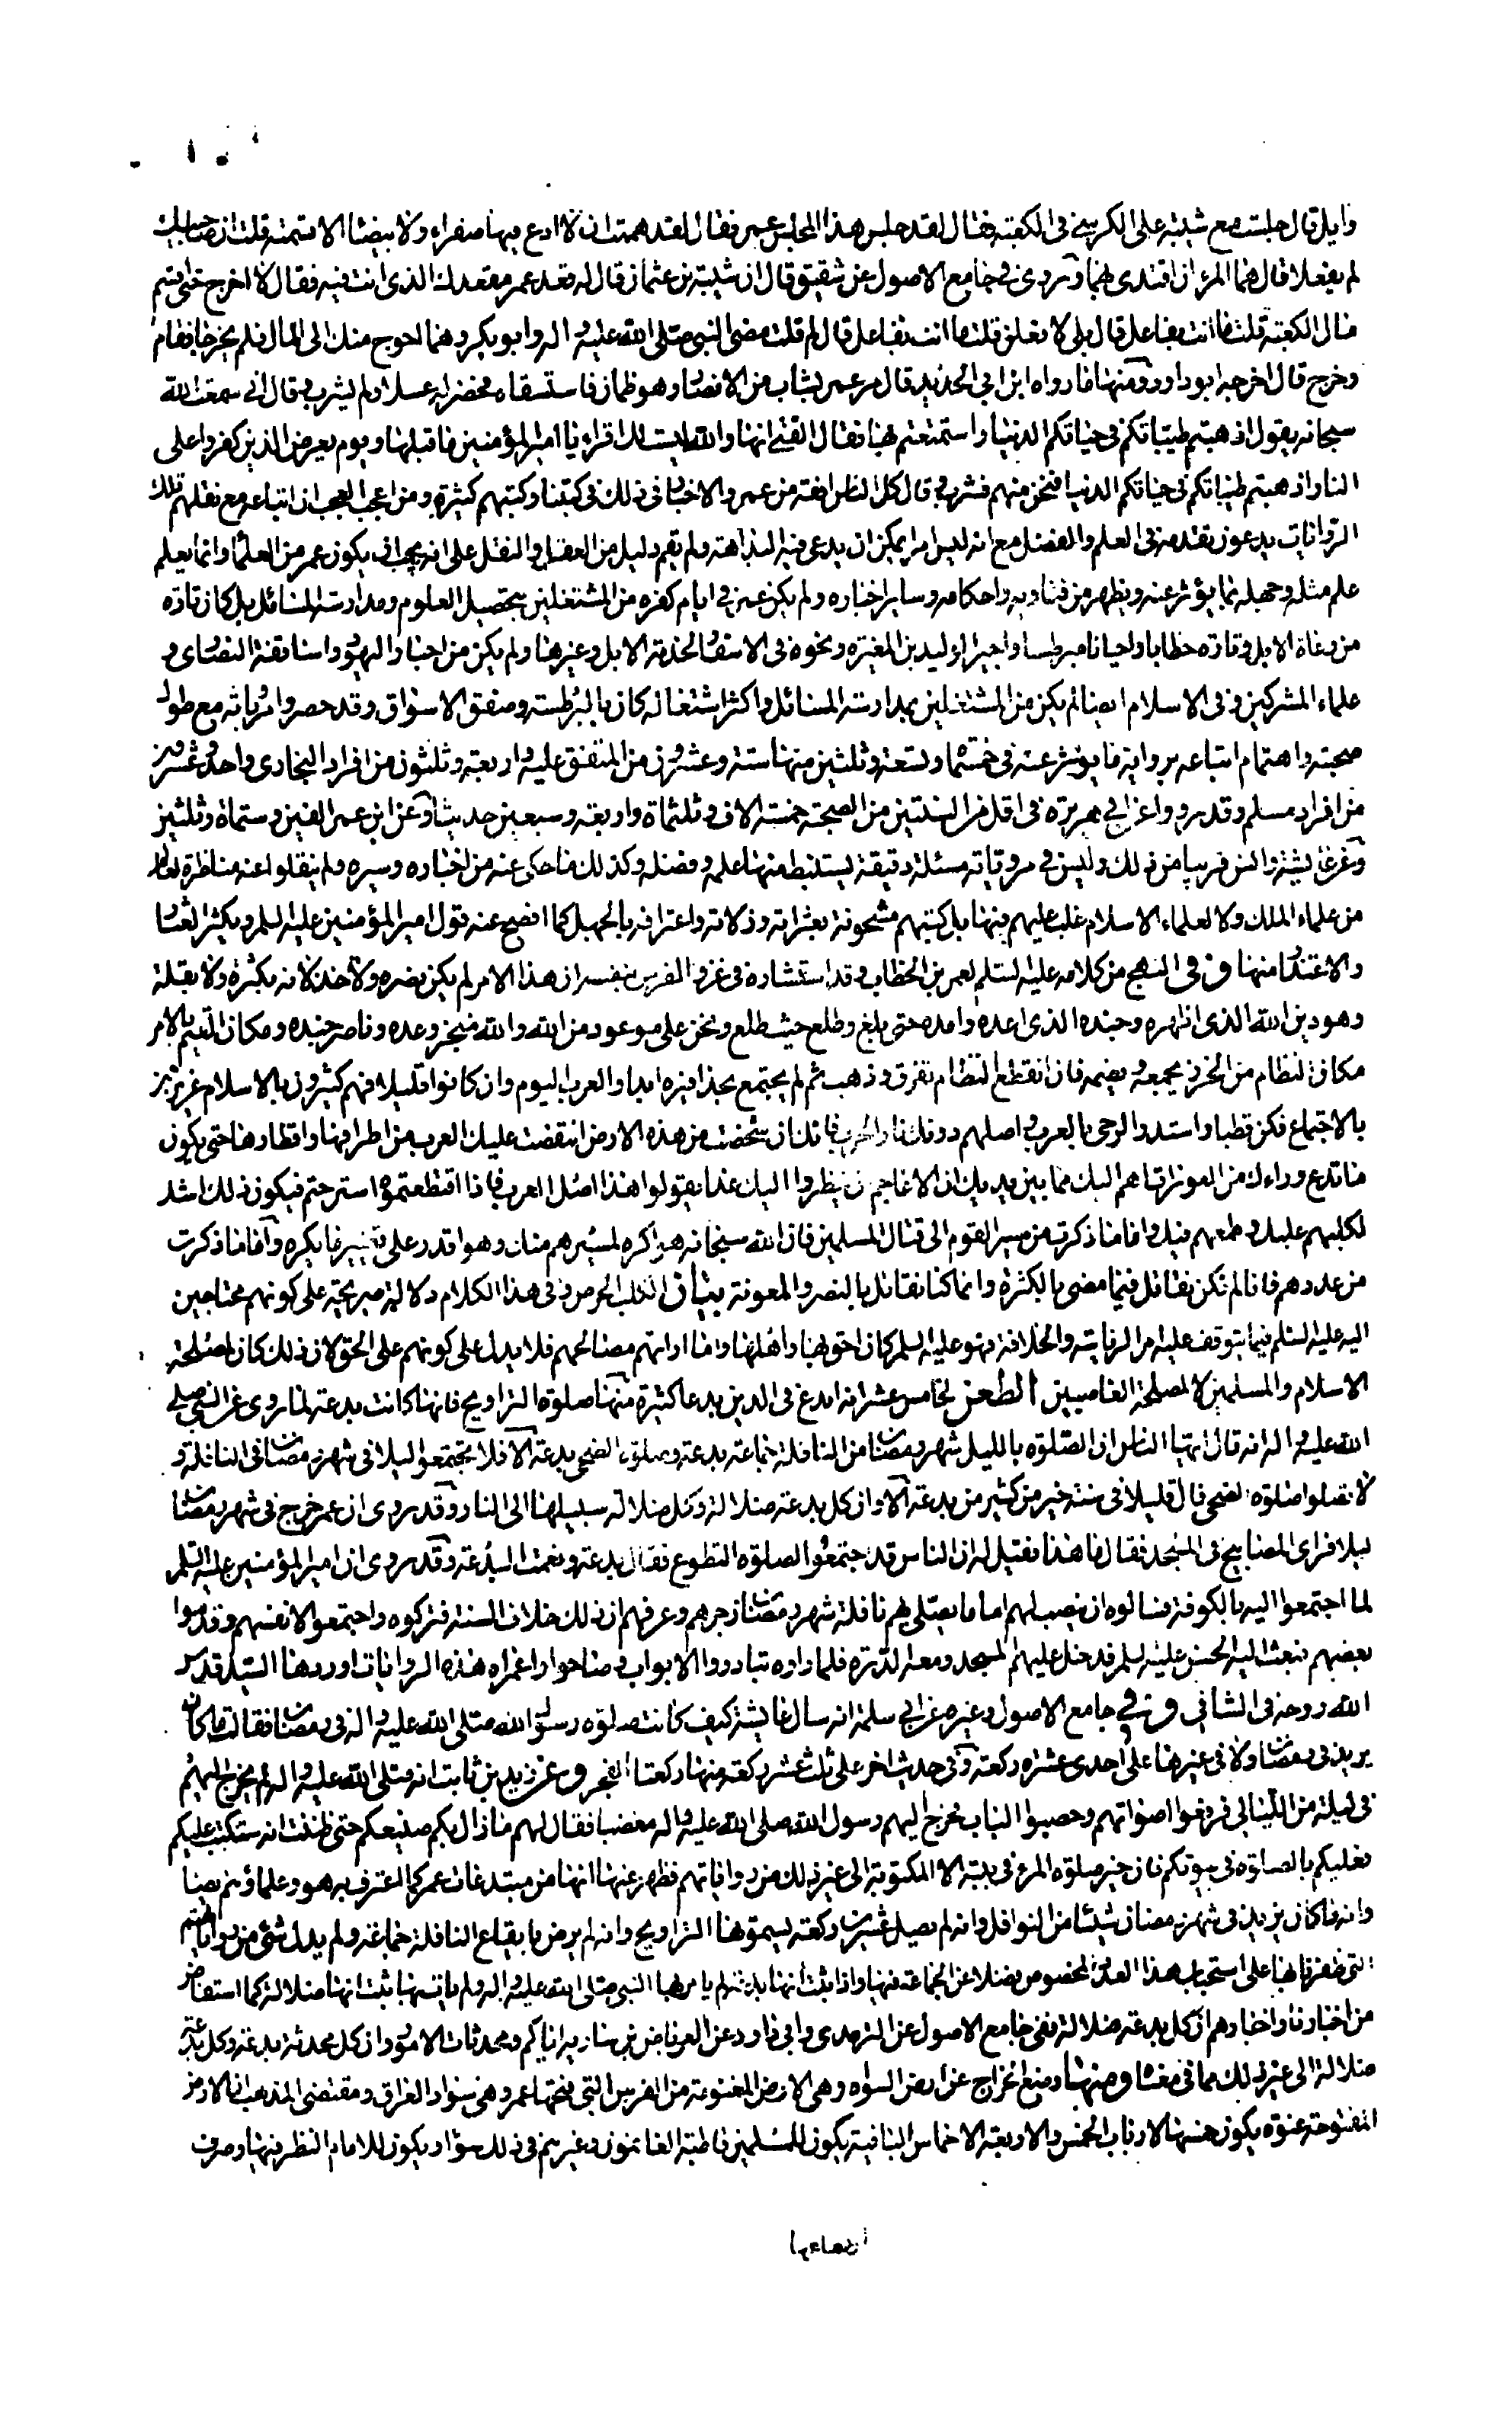 وايل قال جلست مع شيبة على الكرسي في الكعبة فقال لقد جلس هذا المجلس عمر فقال لقد هممت ان لا ادع فيها صفراء ولا بيضاء الا قسمته قلت ان صاحبيك
لم يفعلا قال هما المرءان اقتدى بهما وروى في جامع الاصول عن شقيق قال ان شيبة بن عثمان قال له قعد عمر مقعدك الذي انت فيه فقال لا اخرج حتى اقسم
مال الكعبة قلت ما انت بفاعل قال بلى لافعلن قلت ما انت بفاعل قال لم قلت مضى النبي صلى الله عليه واله وابو بكر وهما احوج منك الى المال فلم يخرجاه فقام
وخرج قال اخرجه ابو داود ومنها ما رواه ابن ابي الحديد قال مر عمر بشاب من الانصار وهو ظمان فاستسقاه فخضر له عسلا ولم يشرب وقال اني سمعت الله
سبحانه يقول اذهبتم طيباتكم في حياتكم الدنيا واستمتعتم بها فقال الفتى انها والله ليست لك اقرء يا امير المؤمنين ما قبلها ويوم يعرض الذين كفروا على
النار اذهبتم طيباتكم في حياتكم الدنيا افنحن منهم فشرب وقال كل الناس افقه من عمر والاخبار في ذلك في كتبنا وكتبهم كثيرة ومن اعجب العجب ان اتباعه مع نقلهم تلك
الروايات يدعون تقدمه في العلم والفضل مع انه ليس امرا يمكن ان يدعى فيه البداهة ولم يقم دليل من العقل والنقل على انه يجب ان يكون عمر من العلماء وانما يعلم
علم مثله وجهله بما يؤثر عنه ويظهر من فتاويه واحكامه وساير اخباره ولم يكن عمر في ايام كفره من المشتغلين بتحصيل العلوم ومدارسة المسائل بل كان تارة
من رعاة الابل وتارة حطابا واحيانا مبرطسا واجيرا لوليد بن المغيرة ونحوه في الاسفار لخدمة الابل وغيرها ولم يكن من احبار اليهود واساقفة النصارى و
علماء المشركين وفي الاسلام ايضا لم يكن من المشتغلين بمدارسة المسائل واكثر اشتغاله كان بالبرطسة وصفق الاسواق وقد حصروا مروياته مع طول
صحبته واهتمام اتباعه برواية ما يؤثر عنه في خمسمائة وتسعة وثلثين منها ستة وعشرون من المتفق عليه واربعة وثلثون من افراد البخاري واحد وعشرون
من افراد مسلم وقد رووا عن ابي هريرة في اقل من السنتين من الصحبة خمسة الاف وثلثمائة واربعة وسبعين حديثا وعن ابن عمر الفين وستمائة وثلثين
وعن عايشة وانس قريبا من ذلك وليس في مروياته مسئلة دقيقة يستنبط منها علمه وفضله وكذلك ما حكى عنه من اخباره وسيره ولم ينقلوا عنه مناظرة لعالم
من علماء الملك ولا لعلماء الاسلام غلب عليهم فيها بل كتبهم مشحونة بعثراته وزلاته واعترافه بالجهل كما افصح عنه قول امير المؤمنين عليه السلم ويكثر العثار
والاعتذار منها وفي النهج من كلامه عليه السلم لعمر بن الخطاب وقد استشاره في غزو الفرس بنفسه ان هذا الامر لم يكن نصره ولا خذلانه بكثرة ولا بقلة
وهو دين الله الذي اظهره وجنده الذي اعده وامده حتى بلغ ما بلغ وطلع حيث طلع ونحن على موعود من الله والله منجز وعده وناصر جنده ومكان القيم بالامر
مكان النظام من الخرز يجمعه ويضمه فان انقطع النظام تفرق وذهب ثم لم يجتمع بحذافيره ابدا والعرب اليوم وان كانوا قليلا فهم كثيرون بالاسلام عزيزون
بالاجتماع فكن قطبا واستدر الرحى بالعرب واصلهم دونك نار الحرب فانك ان شخصت من هذه الارض انتقضت عليك العرب من اطرافها واقطارها حتى يكون
ما تدع وراءك من العورات اهم اليك مما بين يديك ان الاعاجم ان ينظروا اليك غدا يقولوا هذا اصل العرب فاذا اقتطعتموه استرحتم فيكون ذلك اشد
لكلبهم عليك وطمعهم فيك واما ما ذكرت من مسير القوم الى قتال المسلمين فان الله سبحانه هو اكره لمسيرهم منك وهو اقدر على تغيير ما يكره واما ما ذكرت
من عددهم فانا لم نكن نقاتل فيما مضى بالكثرة وانما كنا نقاتل بالنصر والمعونة بيان الكلب الحرص وفي هذا الكلام دلالة صريحة على كونهم محتاجين
اليه عليه السلم فيما يتوقف عليه امر الرياسة والخلافة فهو عليه السلم كان احق بها واهلها واما اراءتهم مصالحهم فلا يدل على كونهم على الحق لان ذلك كان لمصلحة
الاسلام والمسلمين لا لمصلحة الغاصبين الطعن الخامس عشر انه ابدع في الدين بدعا كثيرة منها صلوة التراويح فانها كانت بدعة لما روى عن النبي صلى
الله عليه واله انه قال ايها الناس ان الصلوة بالليل شهر رمضان من النافلة جماعة بدعة وصلوة الضحى بدعة الا فلا تجتمعوا ليلا في شهر رمضان في النافلة و
لا تصلوا صلوة الضحى فان قليلا في سنة خير من كثير من بدعة الا وان كل بدعة ضلالة وكل ضلالة سبيلها الى النار وقد روى ان عمر خرج في شهر رمضان
ليلا فراى المصابيح في المسجد فقال ما هذا فقيل له ان الناس قد اجتمعوا لصلوة التطوع فقال بدعة ونعمت البدعة وقد روى ان امير المؤمنين عليه السلم
لما اجتمعوا اليه بالكوفة فسالوه ان ينصب لهم اماما يصلي بهم نافلة شهر رمضان زجرهم وعرفهم ان ذلك خلاف السنة فتركوه واجتمعوا لانفسهم وقدموا
بعضهم فبعث اليهم الحسن عليه السلم فدخل عليهم المسجد ومعه الدرة فلما راوه تبادروا الابواب وصاحوا واعمراه هذه الروايات اوردها السيد قدس
الله روحه في الشافي وروى في جامع الاصول وغيره عن ابي سلمة انه سال عايشة كيف كانت صلوة رسول الله صلى الله عليه واله في رمضان فقالت ما كان
يزيد في رمضان ولا في غيرها على احدى عشره ركعة وفي حديث اخر على ثلث عشر ركعة منها ركعتا الفجر وعن زيد بن ثابت انه صلى الله عليه واله لم يخرج اليهم
في ليلة من الليالي فرفعوا اصواتهم وحصبوا الباب فخرج اليهم رسول الله صلى الله عليه واله مغضبا فقال لهم ما زال بكم صنيعكم حتى ظننت انه ستكتب عليكم
فعليكم بالصلوة في بيوتكم فان خير صلوة المرء في بيته الا المكتوبة الى غير ذلك من رواياتهم فظهر عنها انها من مبتدعات عمر كما اعترف به هو وعلماؤهم ايضا
وانه ما كان يزيد في شهر رمضان شيئا من النوافل وانه لم يصل عشرين ركعة يسموها التراويح وانه لم يرض بايقاع النافلة جماعة ولم يدل شيء من رواياتهم
التي ظفرنا بها على استحباب هذا العدد المخصوص فضلا عن الجماعة فيها واذا ثبت انها بدعة لم يامر بها النبي صلى الله عليه واله ولم يات بها ثبت انها ضلالة كما استفاض
من اخبارنا واخبارهم ان كل بدعة ضلالة ففي جامع الاصول عن الترمذي وابي داود عن العرباض بن سارية اياكم ومحدثات الامور وان كل محدثة بدعة وكل بدعة
ضلالة الى غير ذلك مما في معناه ومنها وضع الخراج عن ارض السواد وهي الارض المغنومة من الفرس التي فتحها عمر وهي سواد العراق ومقتضى المذهب ان الارض
المفتوحة عنوة يكون خمسها لارباب الخمس والاربعة الاخماس الباقية يكون للمسلمين قاطبة الغانمون وغيرهم في ذلك سواء ويكون للامام النظر فيها وصرف